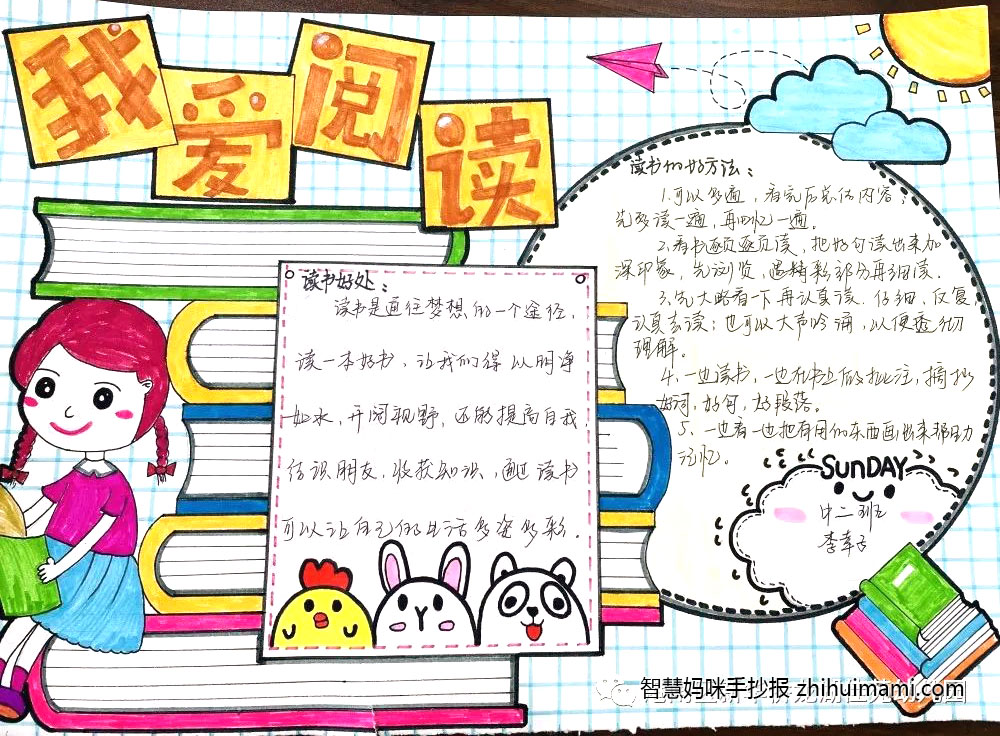 我爱阅读
读书好处：
读书是通往梦想的一个途径，
读一本好书，让我们得以明净
如水，开阔视野，还能提高自我，
结识朋友，收获知识，通过读书
可以让自己的生活多姿多彩．
读书的好方法：
1.可以多遍，看完后总结内容；
先多读一遍，再回忆一遍。
2.看书逐页逐页读，把好句读出来加
深印象，先浏览，遇精彩部分再细读．
3.先大略看一下再认真读．仔细、反复
认真去读；也可以大声吟诵，以便透彻
理解。
4、一边读书，一边在书上做批注，摘抄
好词，好句，好段落。
5、一边看一边把有用的东西画出来帮助
记忆。
SUnDAY
中二班
李幸
智慧妈咪手抄报 zhihuimami.com